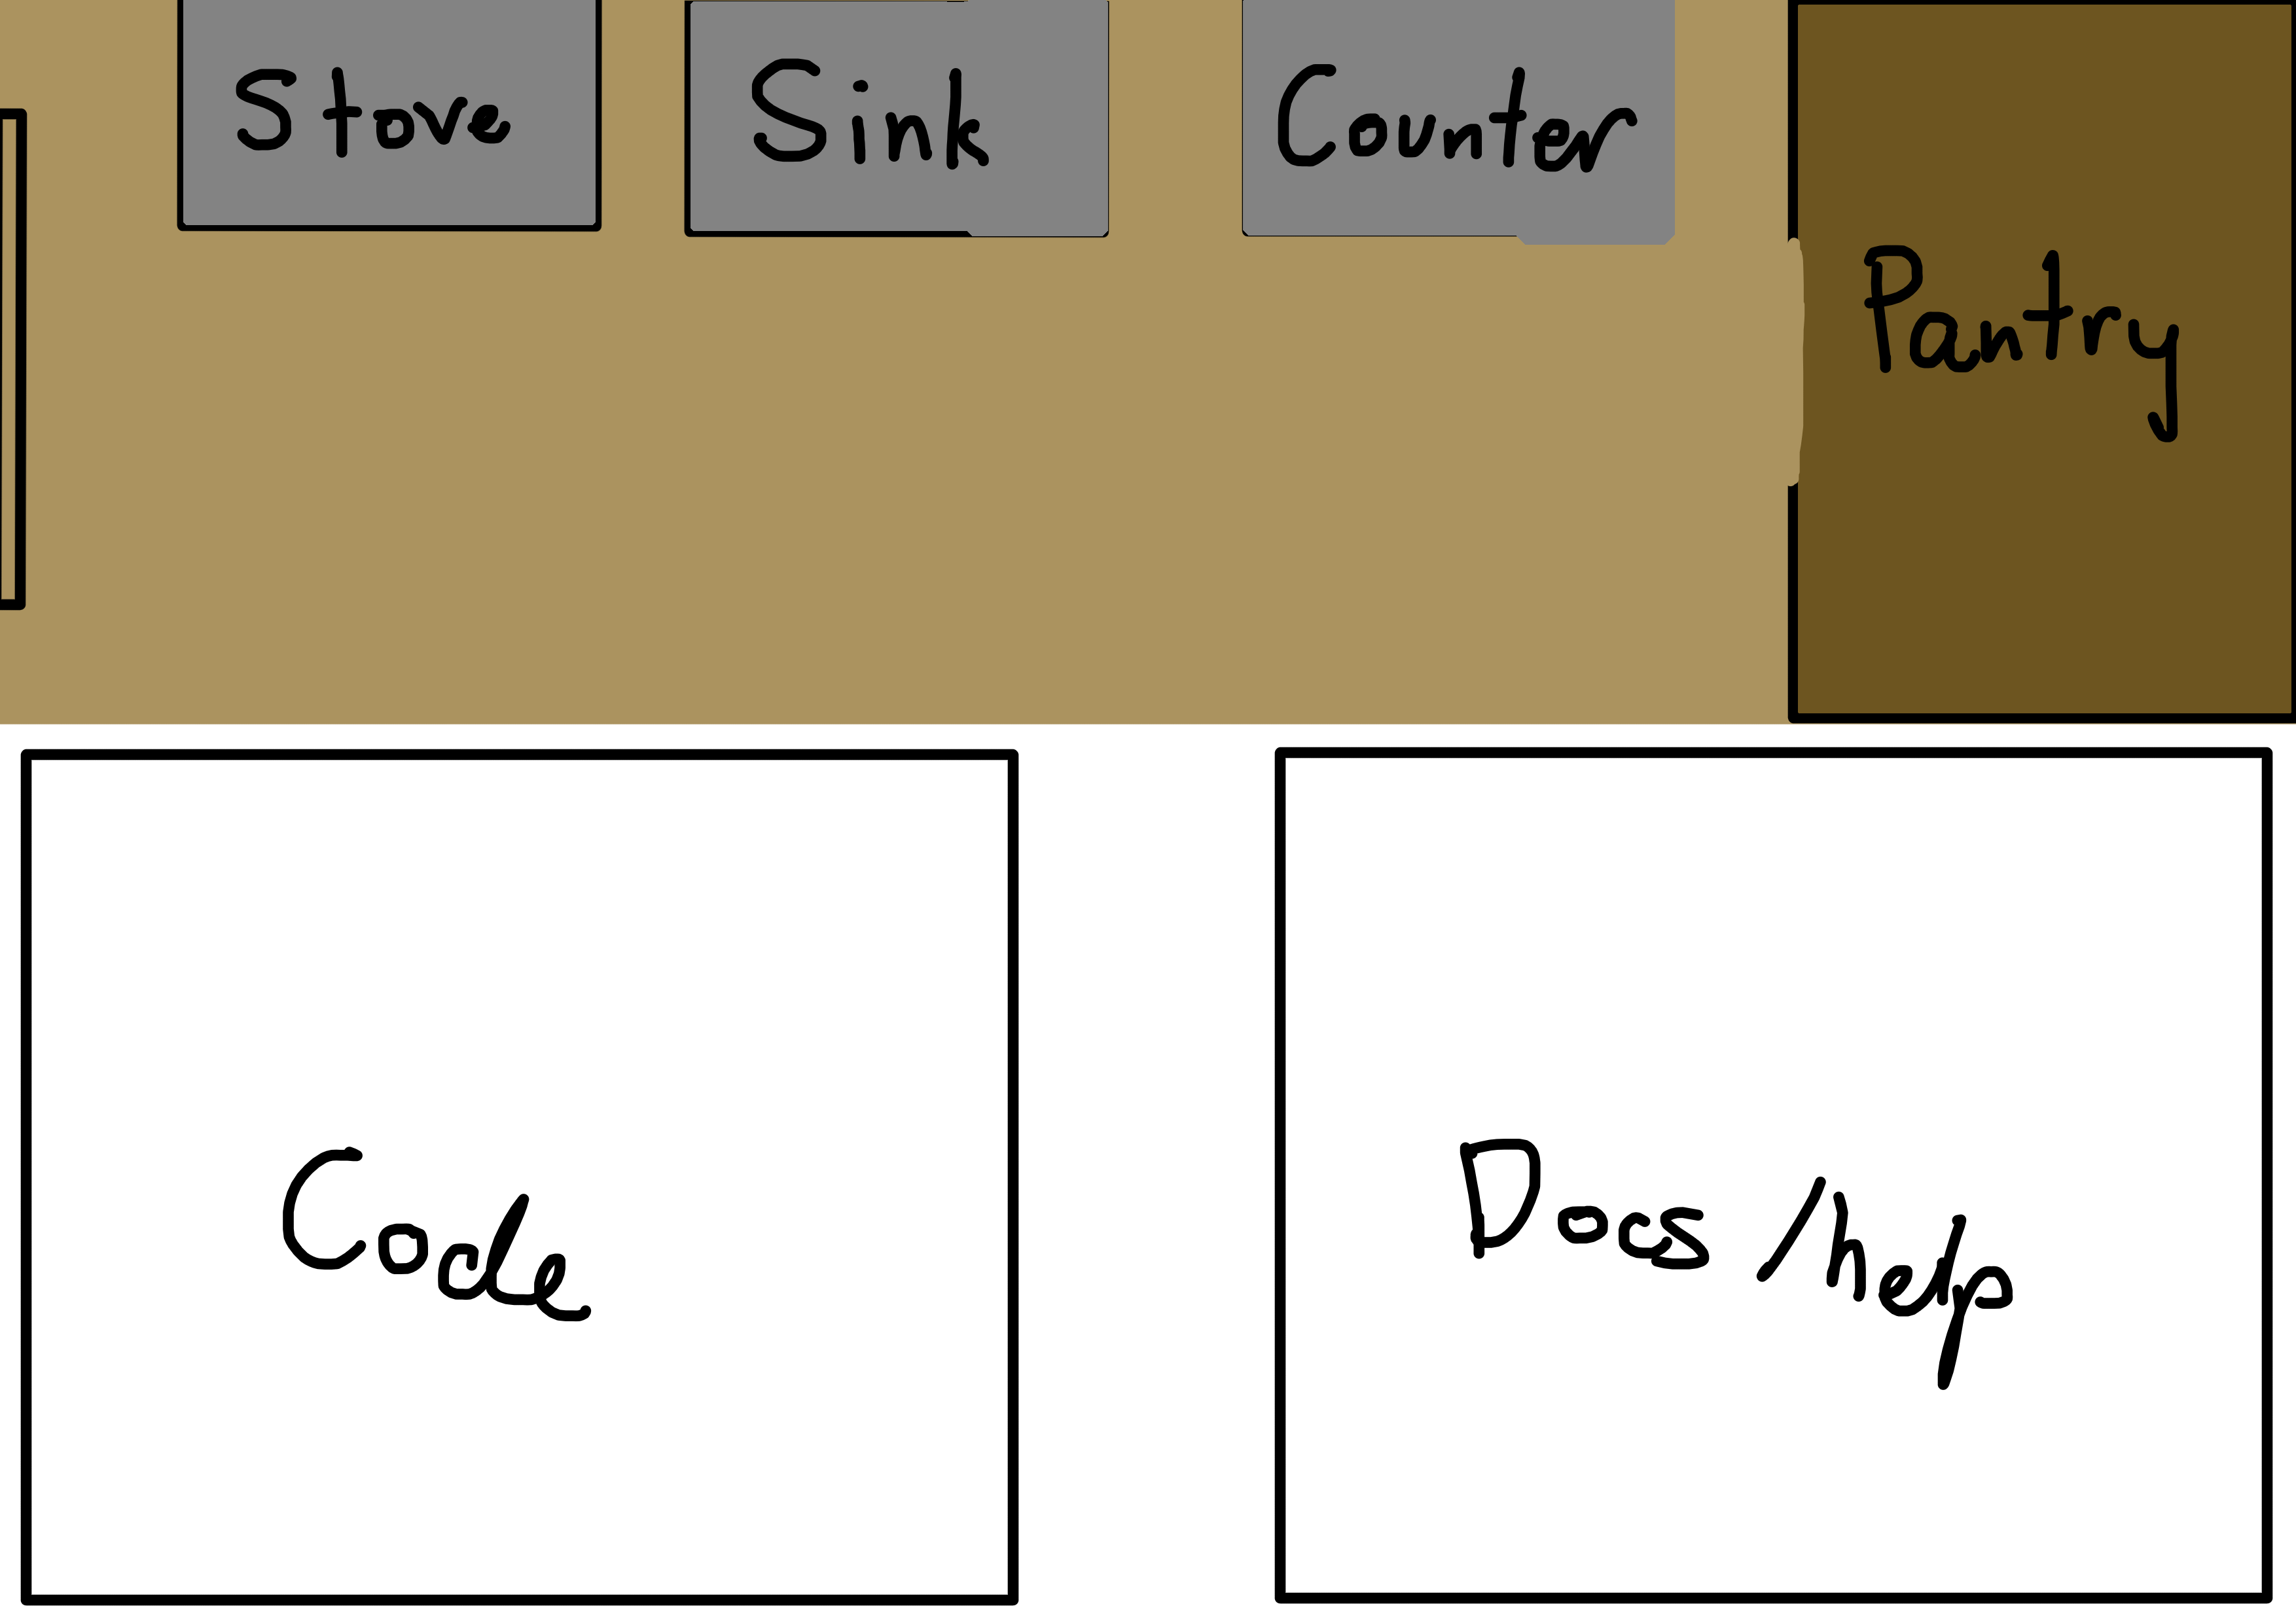 Stove
Sink
Counter
Pantry
Code
Docs/help